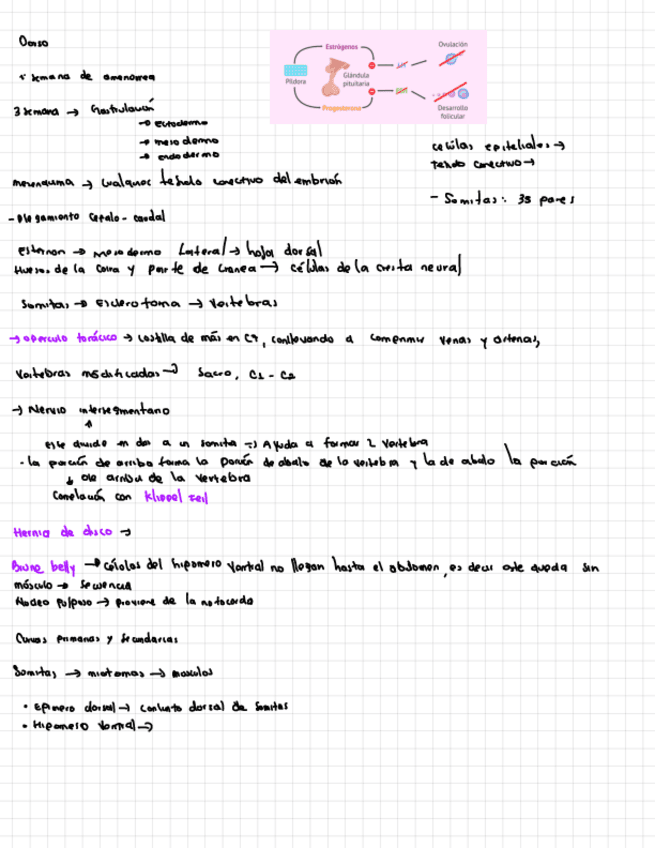 Dorso
Estrógenos
Píldora
Glándula
pituitaria
Progesterona
Ovulación
Desarrollo
folicular
semana de amenorrea
3 semana → Gastrulación
→ ectodermo
→ mesodermo
→ endodermo
células epiteliales →
tejido conectivo →
mesenquima → cualquier tejido conectivo del embrión
- Somitas: 35 pares
- Plegamiento cefalo - caudal
Esternon → mesodermo Lateral → hoja dorsal
Huesos de la cara y parte de craneo → células de la cresta neural
Somitas → Esclerotoma → Vertebras
→ operculo torácico → costilla de más en C7, conllevando a comprimir venas y arterias,
Vertebras modificadas → Sacro, C1 - C2
→ Nervio intersegmentario
este divide en dos a un somita => Ayuda a formar 2 vertebra
· la porción de arriba forma la porción de abajo de la vertebra y la de abajo la porción
↳ de arriba de la vertebra
Correlación con Klippel Feil
Hernia de disco →
Prune belly → células del hipomero ventral no llegan hasta el abdomen, es decir este queda sin
músculo → secuencia
Nucleo pulposo → proviene de la notocorda
Curvas primarias y secundarias
Somitas → miotomas → musculos
• Epimero dorsal → conjunto dorsal de somitas
• Hipomero Ventral →